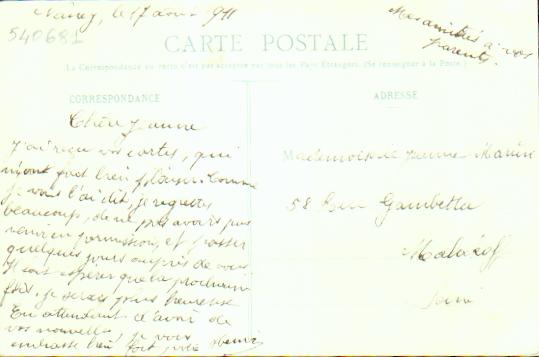 Nancy, le 17 août 1911
Mes amitiés à vos
parents.
540681
CARTE POSTALE
La Correspondance au recto n'est pas acceptée par tous les Pays Etrangers. (Se renseigner à la Poste)
CORRESPONDANCE
ADRESSE
Chère Jeanne
J'ai reçu vos cartes, qui
m'ont fait bien plaisir. Comme
je vous l'ai dit, je regrette
beaucoup, de ne pas avoir pu
venir en permission, et passer
quelques jours auprès de vous
Il faut espérer que la prochaine
fois, je serai plus heureuse
En attendant d'avoir de
vos nouvelles, je vous
embrasse bien fort
Mademoiselle Jeanne
58 Rue Gambetta
Malakoff
Seine